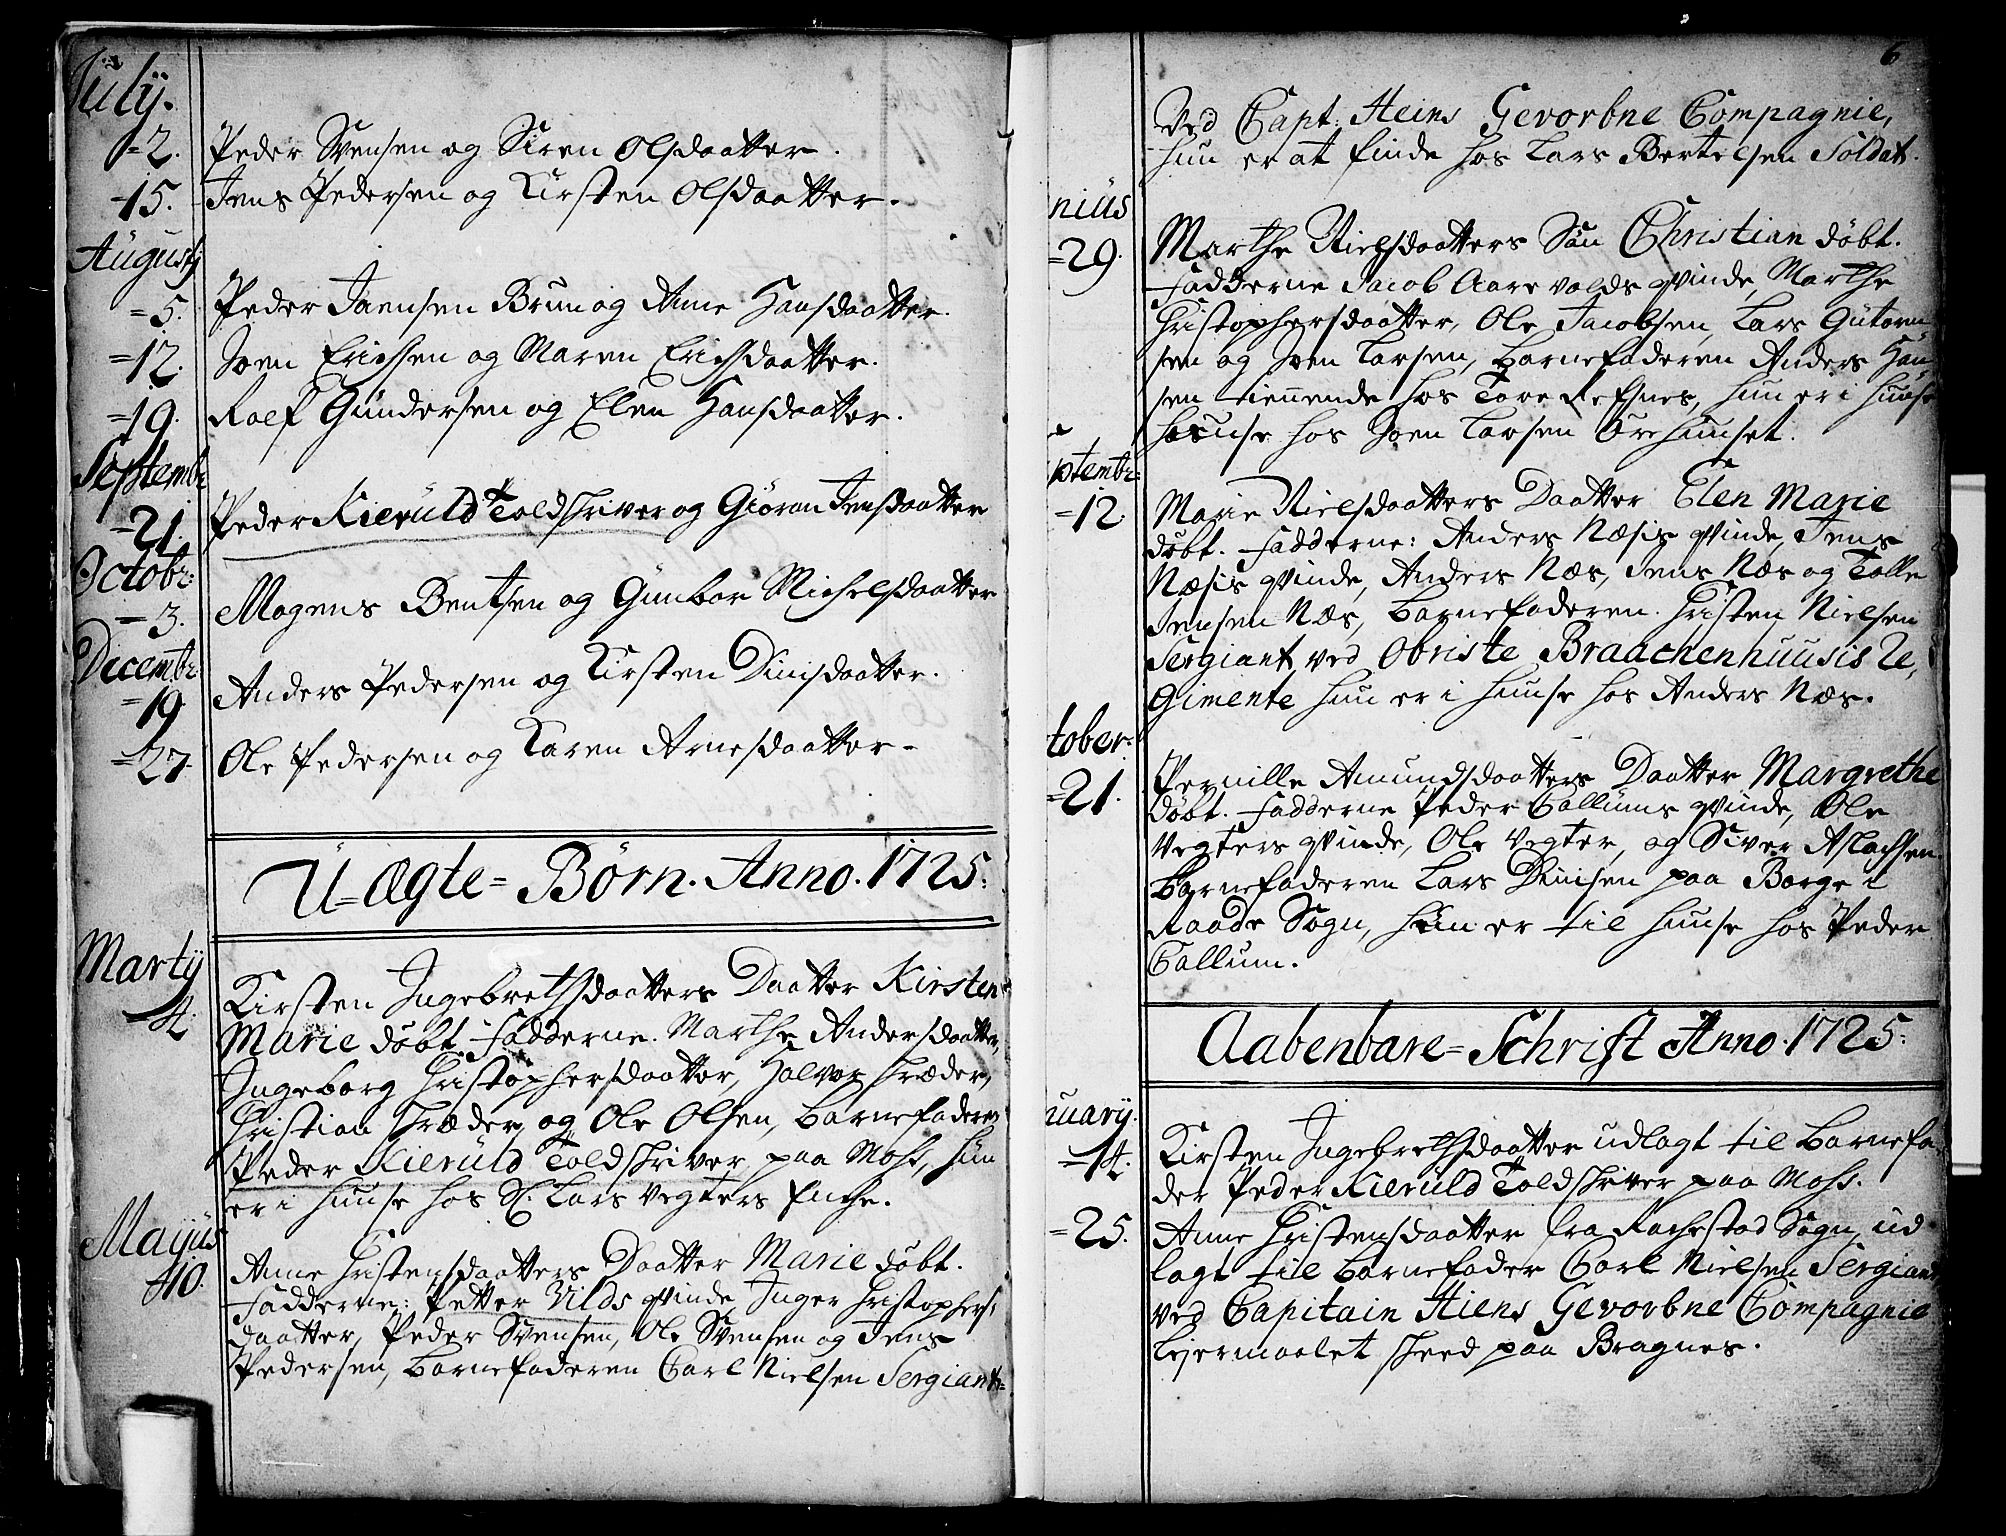 July.
=2. Peder Svensen og Siren Olsdaatter.
-15. Jens Pedersen og Kirsten Olsdaatter.
Augustj
=5. Peder Joensen Brun og Anne Hansdaatter.
=12. Joen Erichsen og Maren Erichsdaatter.
=19. Roef Gundersen og Elen Hansdaatter.
Septembr
=21. Peder Kieruld Toldskriver og Giøran Jensdaatter
Octobr:
-3. Mogens Bentsen og Gunbor Michelsdaatter
Decembr
=19. Anders Pedersen og Kirsten Dinisdaatter.
=27. Ole Pedersen og Karen Arnesdaatter.
U=ægte=Børn. Anno. 1725:
Martij
4. Kirsten Ingebrethsdaatters Daatter Kirsten
Marie døbt Fadderne. Marthe Andersdaatter,
Ingeborg Christophersdaatter, Halvor Skræder,
Christian Skræder, og Ole Olsen, Barnefaderen
Peder Kieruld Toldskriver paa Moss, hun
er i huuse hos Sl. Lars Vegters Enche.
Majus
10. Anne Christensdaatters Daatter Marie døbt.
Fadderne: Petter Vilds qvinde, Inger Christophers:
daatter, Peder Svensen, Ole Svensen og Jens
Pedersen, Barnefaderen Carl Nielsen Sergiant
6
Ved Capt: Heins Gevorbne Compagnie,
hun er at finde hos Lars Bertelsen Soldat.
nius
=29. Marthe Nielsdaatters Søn Christian døbt.
Fadderne Jacob Aarevolds qvinde, Marthe
Christophersdaatter, Ole Jacobsen, Lars Gutorm
sen og Joen Larsen, Barnefaderen Anders Han
sen tienende hos Tore Refsnes, hun er i huuse
huuse hos Joen Larsen Ørehuuset.
ptembr:
=12. Marie Nielsdaatters Daatter Elen Marie
døbt. Fadderne: Anders Næsis qvinde, Jens
Næsis qvinde, Anders Næs, Jens Næs og Tolle
Jensen Næs, Barnefaderen. Christen Nielsen
Sergiant ved Obriste Braachenhuusis Re,
Gimente hun er i huuse hos Anders Næs.
tober:
=21. Pernille Amundsdaatters Daatter Margrethe
døbt. Fadderne Peder Callums qvinde, Ole
Vegters qvinde, Ole Vegter, og Siver Aslachsen.
Barnefaderen Lars Dinisen paa Borge i
Raade Sogn, hun er til huuse hos Peder
Callum.
Aabenbare=Schrift Anno. 1725:
nuarij.
=14. Kirsten Ingebrethsdaatter udlagt til Barnefa-
der Peder Kieruld Toldskriver paa Moss.
=25. Anne Christensdaatter fra Rachestad Sogn, ud
lagt til Barnefader Carl Nielsen Sergiant
ved Capitain Hiens Gevorbne Compagnie
Lejermaalet skeed paa Bragnes.